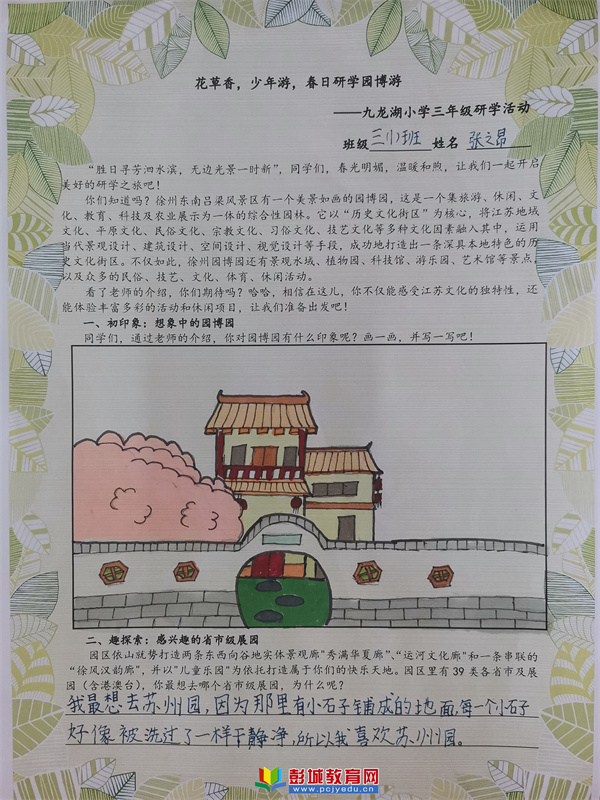 花草香，少年游，春日研学园博游
——九龙湖小学三年级研学活动
班级三（1）班 姓名 张之昂
“胜日寻芳泗水滨，无边光景一时新”，同学们，春光明媚，温暖和煦，让我们一起开启
美好的研学之旅吧！
你们知道吗？徐州东南吕梁风景区有一个美景如画的园博园，这是一个集旅游、休闲、文
化、教育、科技及农业展示为一体的综合性园林。它以“历史文化街区”为核心，将江苏地域
文化、平原文化、民俗文化、宗教文化、习俗文化、技艺文化等多种文化因素融入其中，运用
当代景观设计、建筑设计、空间设计、视觉设计等手段，成功地打造出一条深具本地特色的历
史文化街区。不仅如此，徐州园博园还有景观水域、植物园、科技馆、游乐园、艺术馆等景点，
以及众多的民俗、技艺、文化、体育、休闲活动。
看了老师的介绍，你们期待吗？哈哈，相信在这儿，你不仅能感受江苏文化的独特性，还
能体验丰富多彩的活动和休闲项目，让我们准备出发吧！
一、初印象：想象中的园博园
同学们，通过老师的介绍，你对园博园有什么印象呢？画一画，并写一写吧！
二、趣探索：感兴趣的省市级展园
园区依山就势打造两条东西向谷地实体景观廊"秀满华夏廊"、"运河文化廊"和一条串联的
“徐风汉韵廊”，并以"儿童乐园"为依托打造属于你们的快乐天地。园区里有 39 类各省市及展
园（含港澳台），你最想去哪个省市级展园，为什么呢？
我最想去苏州园，因为那里有小石子铺成的地面，每一个小石子
好像被洗过了一样干静净，所以我喜欢苏州园。
彭城教育网
www.pcjyedu.cn